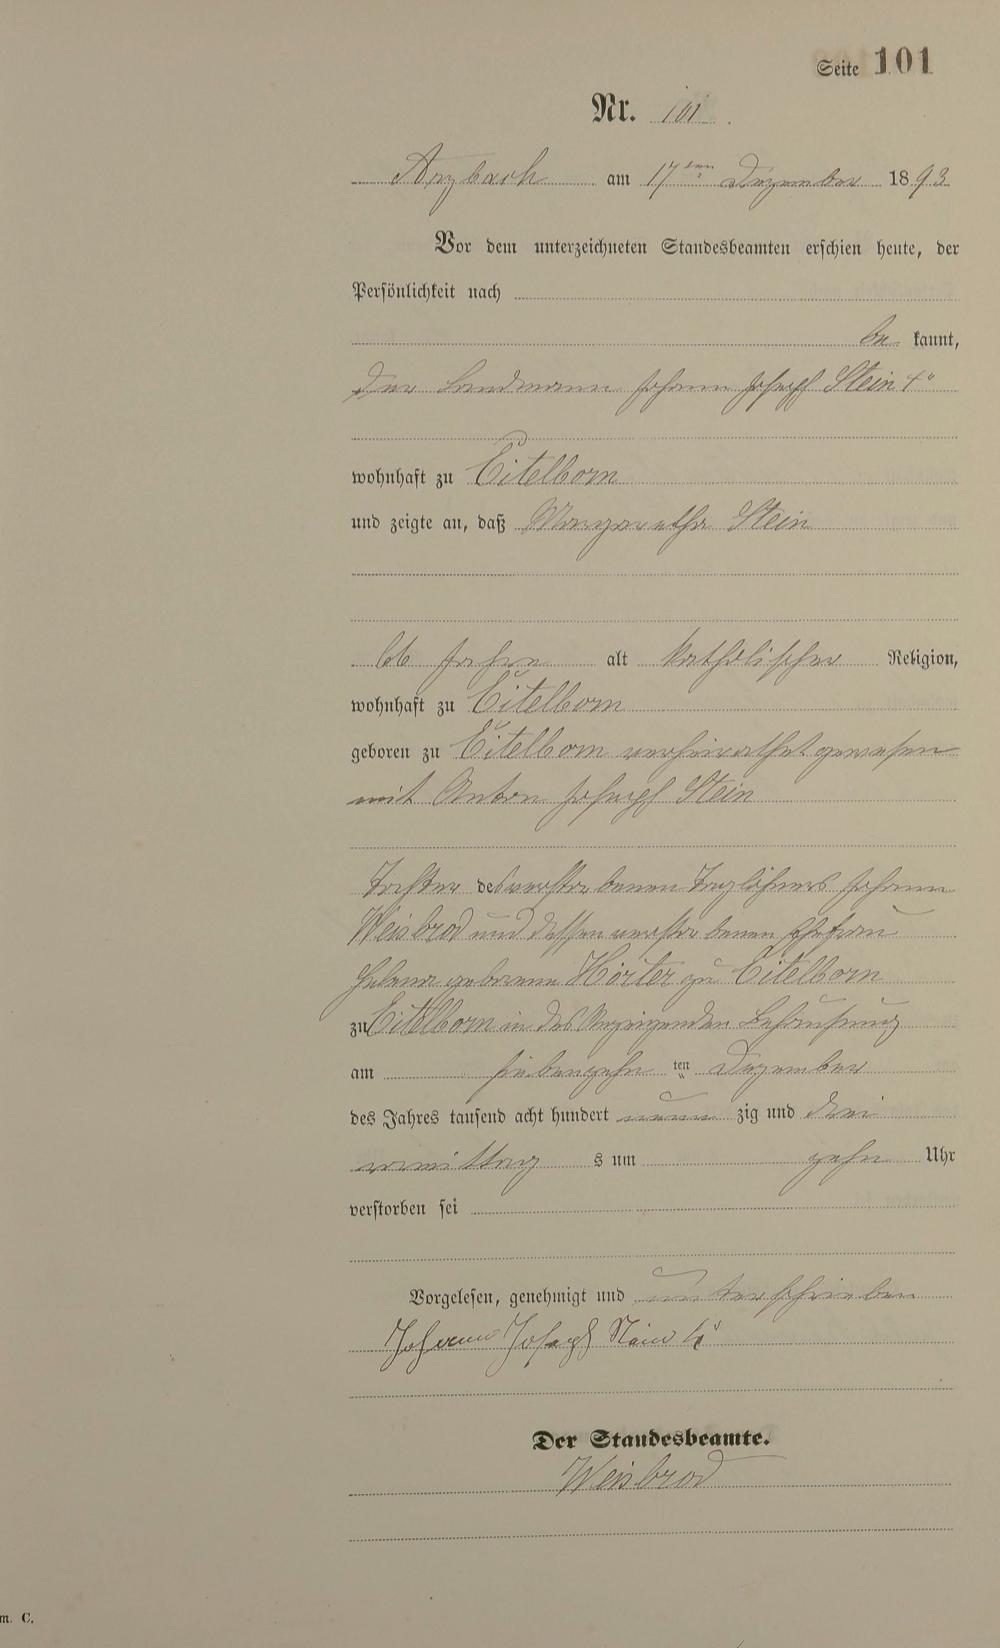 Seite 101
Nr. 101.
Arzbach am 17ten Dezember 1893
Vor dem unterzeichneten Standesbeamten erschien heute, der
Persönlichkeit nach
be kannt,
der Landmann Johann Joseph Stein 4r
wohnhaft zu Eitelborn
und zeigte an, daß Margaretha Stein
66 Jahre alt katholischer Religion,
wohnhaft zu Eitelborn
geboren zu Eitelborn verheirathet gewesen
mit Anton Joseph Stein
Tochter des verstorbenen Taglöhners Johann
Weisbrod und dessen verstorbenen Ehefrau
Helena geborene Hörter zu Eitelborn
zu Eitelborn in des Anzeigenden Behausung
am siebenzehn ten Dezember
des Jahres tausend acht hundert neun zig und drei
vormittag s um zehn Uhr
verstorben sei
Vorgelesen, genehmigt und unterschrieben
Johann Joseph Stein 4r
Der Standesbeamte.
Weisbrod
m. C.